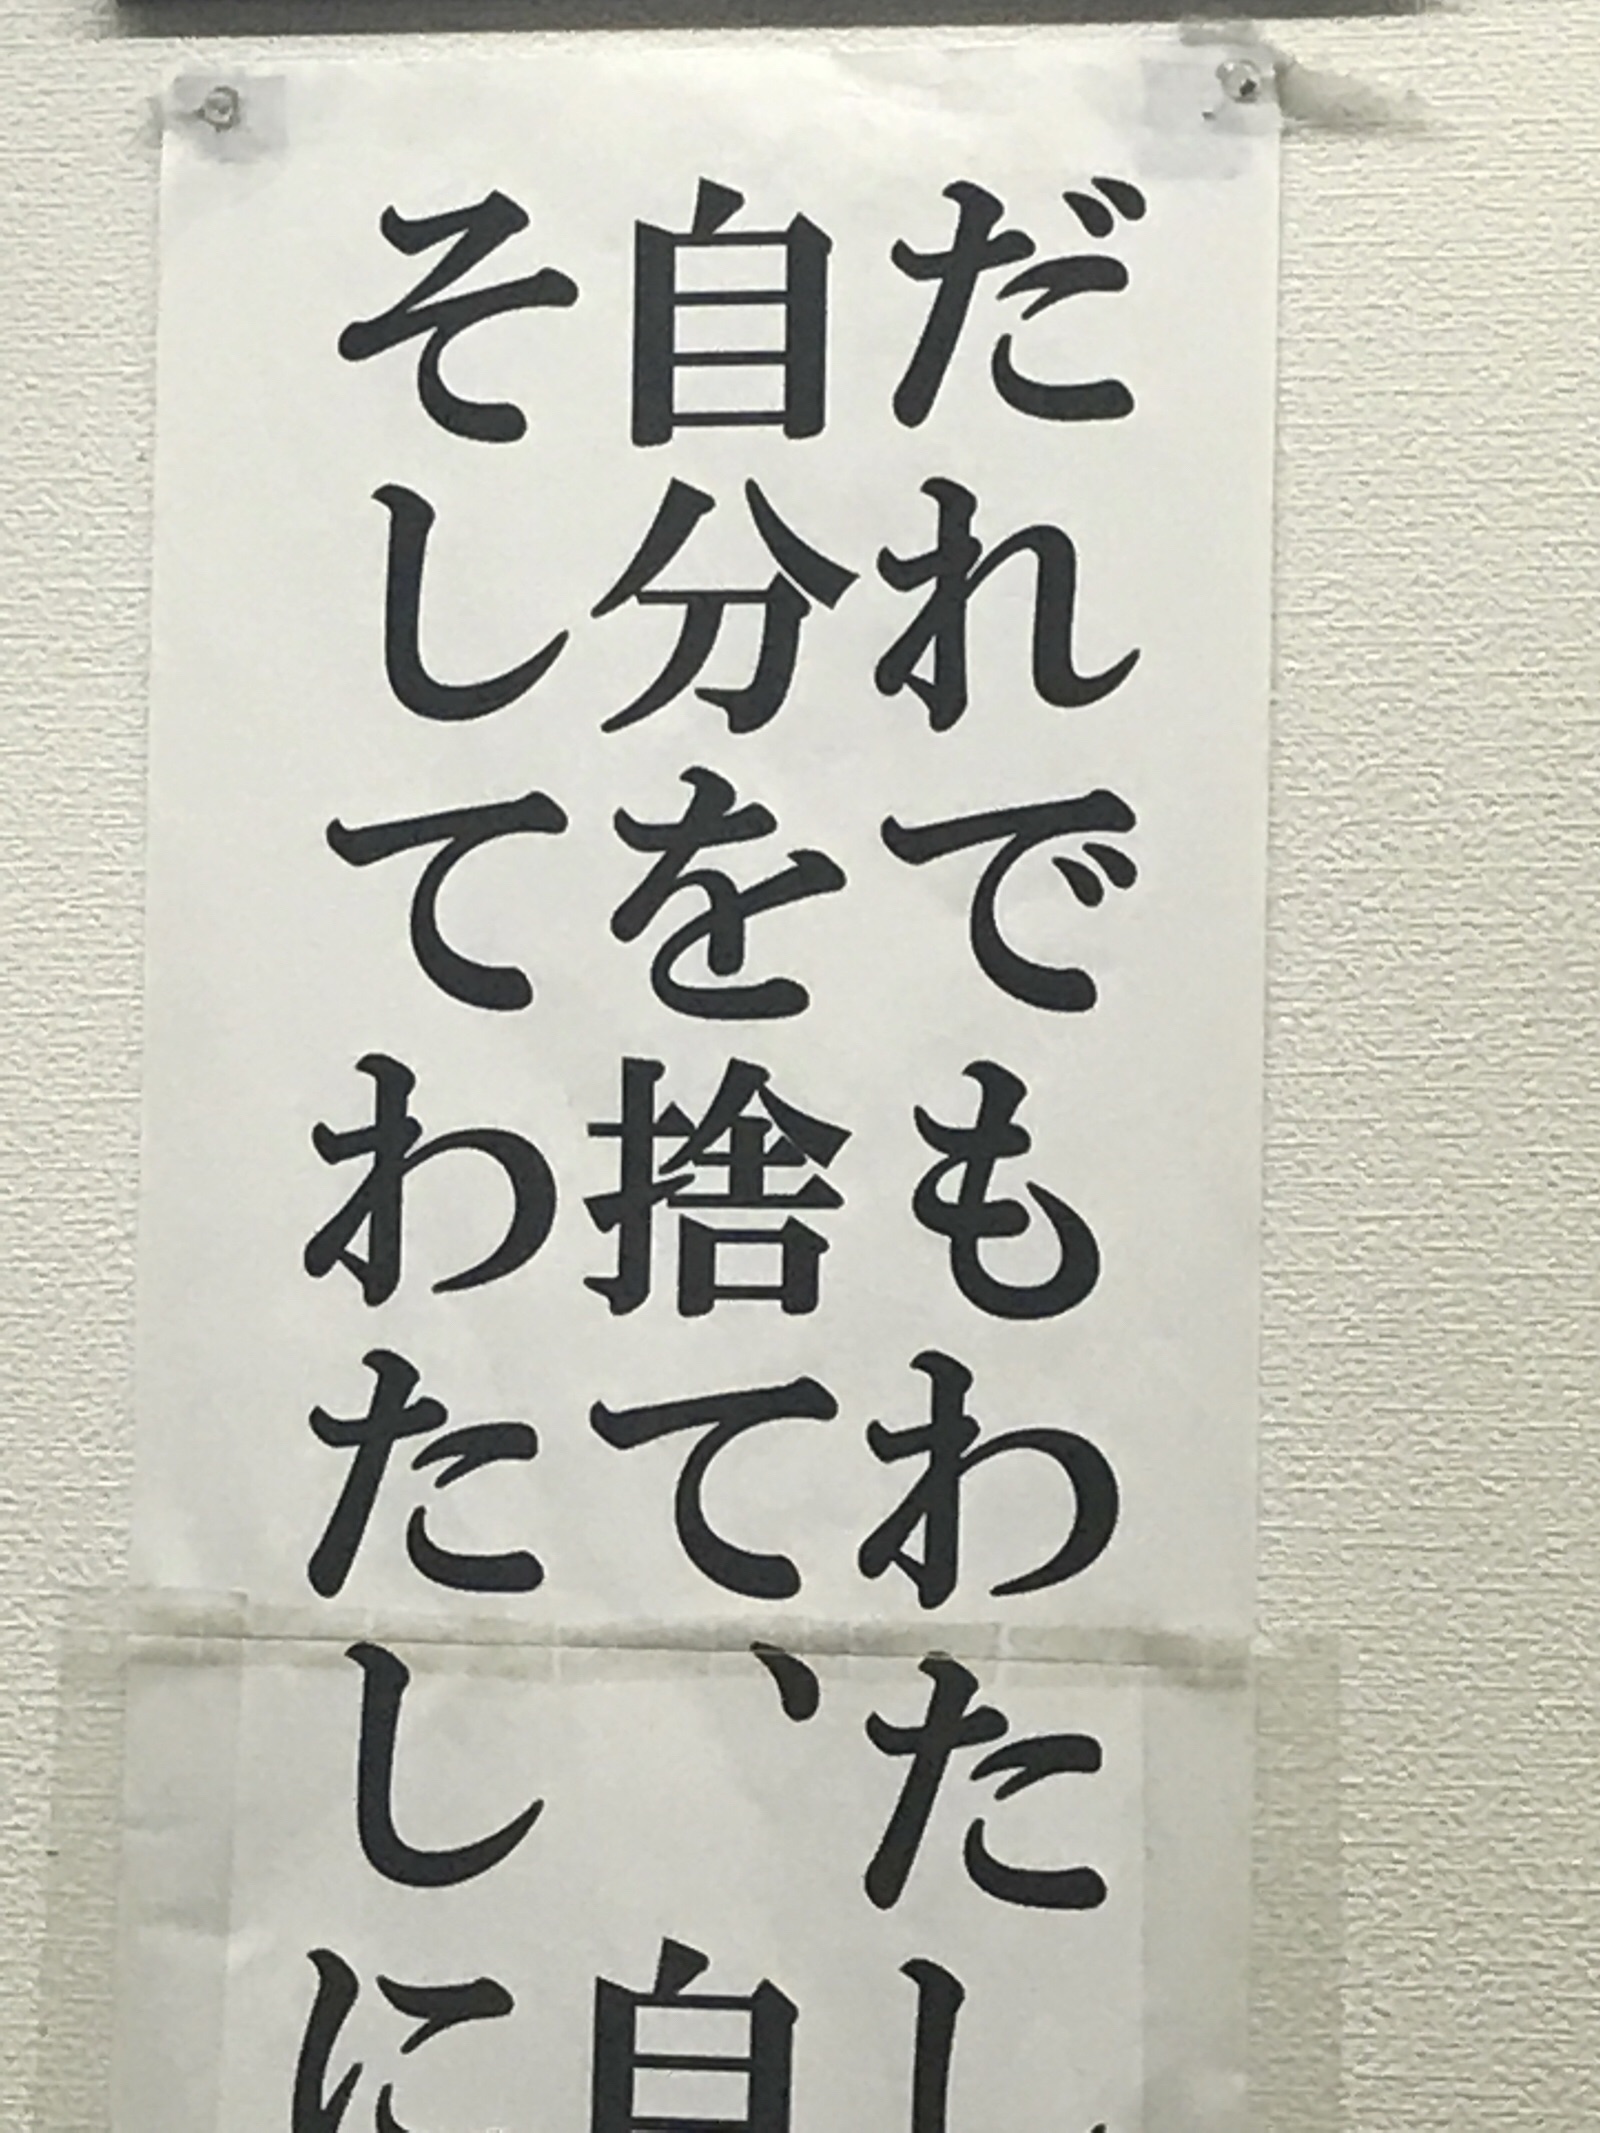 だれでもわたし
自分を捨て、自
そしてわたしに